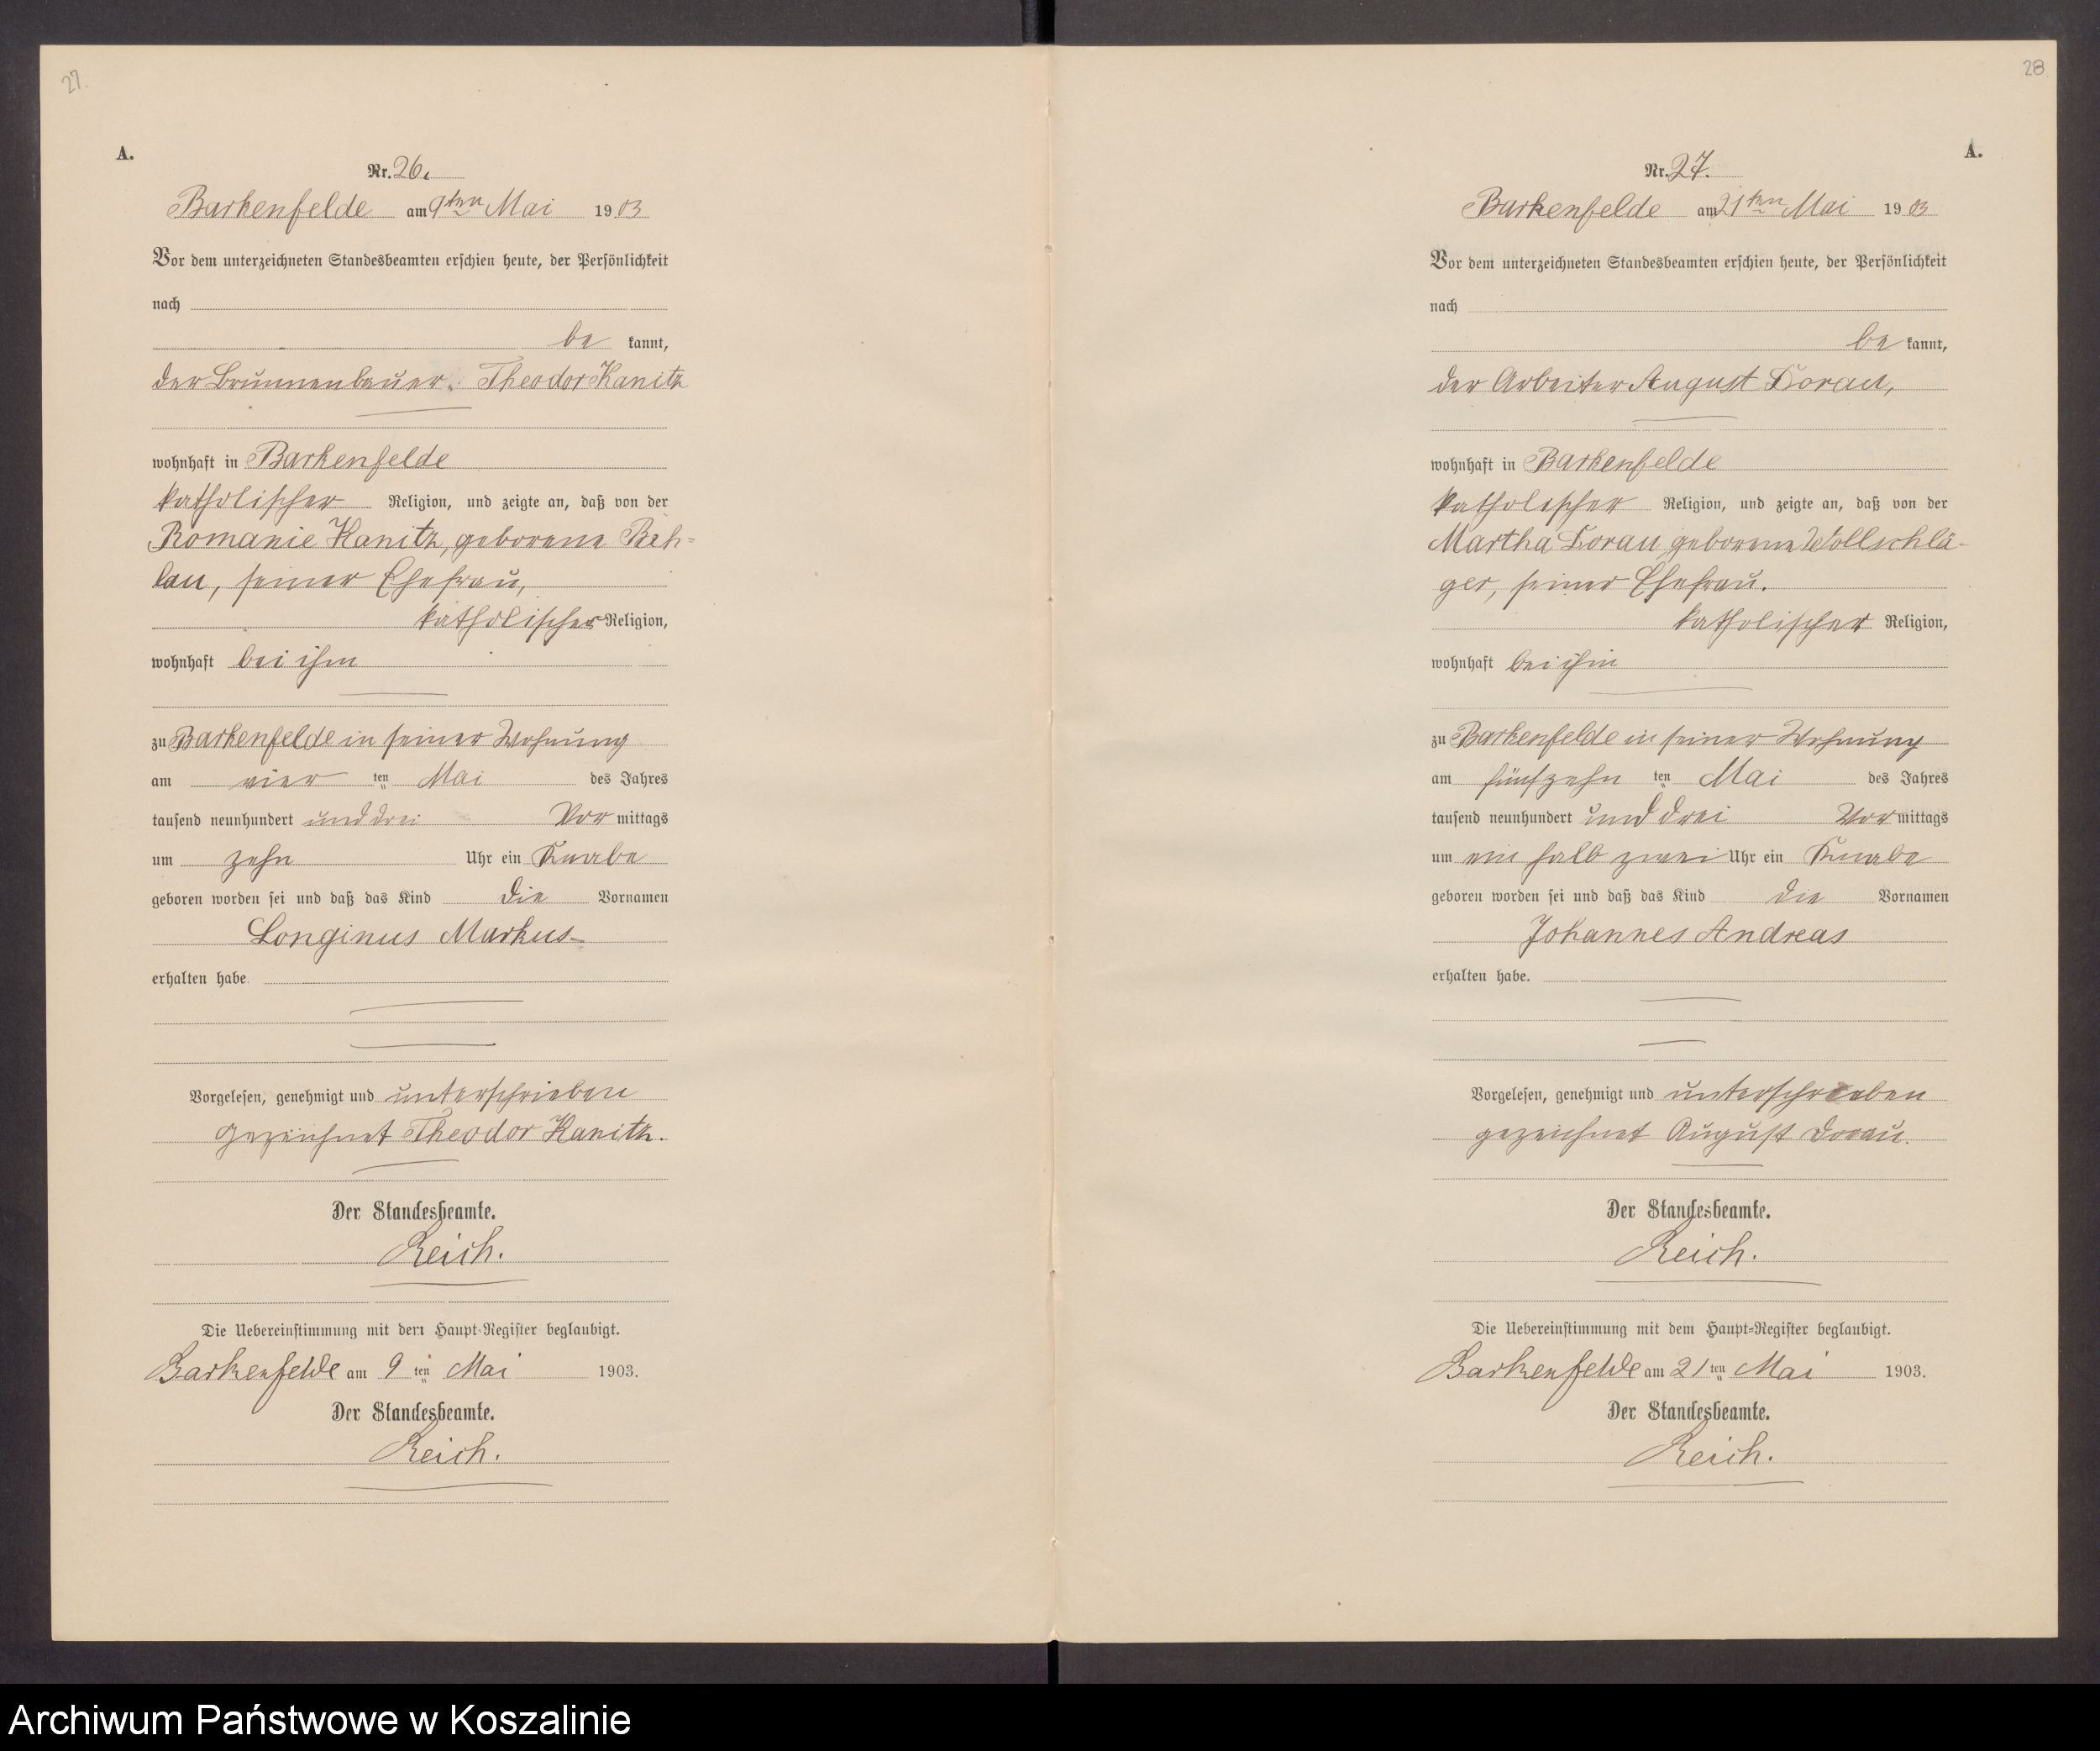 27.
A.
Nr. 26.
Barkenfelde am 9ten Mai 1903
Vor dem unterzeichneten Standesbeamten erschien heute, der Persönlichkeit
nach
be kannt,
der Brunnenbauer Theodor Kanitz
wohnhaft in Barkenfelde
katholischer Religion, und zeigte an, daß von der
Romanie Kanitz, geborene Beh=
lau, seiner Ehefrau,
katholischer Religion,
wohnhaft bei ihm
zu Barkenfelde in seiner Wohnung
am vier ten Mai des Jahres
tausend neunhundert und drei Vor mittags
um zehn Uhr ein Knabe
geboren worden sei und daß das Kind die Vornamen
Longinus Markus
erhalten habe.
Vorgelesen, genehmigt und unterschrieben
gezeichnet Theodor Kanitz.
Der Standesbeamte.
Reich.
Die Uebereinstimmung mit dem Haupt-Register beglaubigt.
Barkenfelde am 9 ten Mai 1903.
Der Standesbeamte.
Reich.
28
A.
Nr. 27.
Barkenfelde am 21ten Mai 1903
Vor dem unterzeichneten Standesbeamten erschien heute, der Persönlichkeit
nach
be kannt,
der Arbeiter August Dorau,
wohnhaft in Barkenfelde
katholischer Religion, und zeigte an, daß von der
Martha Dorau geborene Wollschlä-
ger, seiner Ehefrau.
katholischer Religion,
wohnhaft bei ihm
zu Barkenfelde in seiner Wohnung
am fünfzehn ten Mai des Jahres
tausend neunhundert und drei Vor mittags
um ein halb zwei Uhr ein Knabe
geboren worden sei und daß das Kind die Vornamen
Johannes Andreas
erhalten habe.
Vorgelesen, genehmigt und unterschrieben
gezeichnet August Dorau.
Der Standesbeamte.
Reich.
Die Uebereinstimmung mit dem Haupt-Register beglaubigt.
Barkenfelde am 21 ten Mai 1903.
Der Standesbeamte.
Reich.
Archiwum Państwowe w Koszalinie